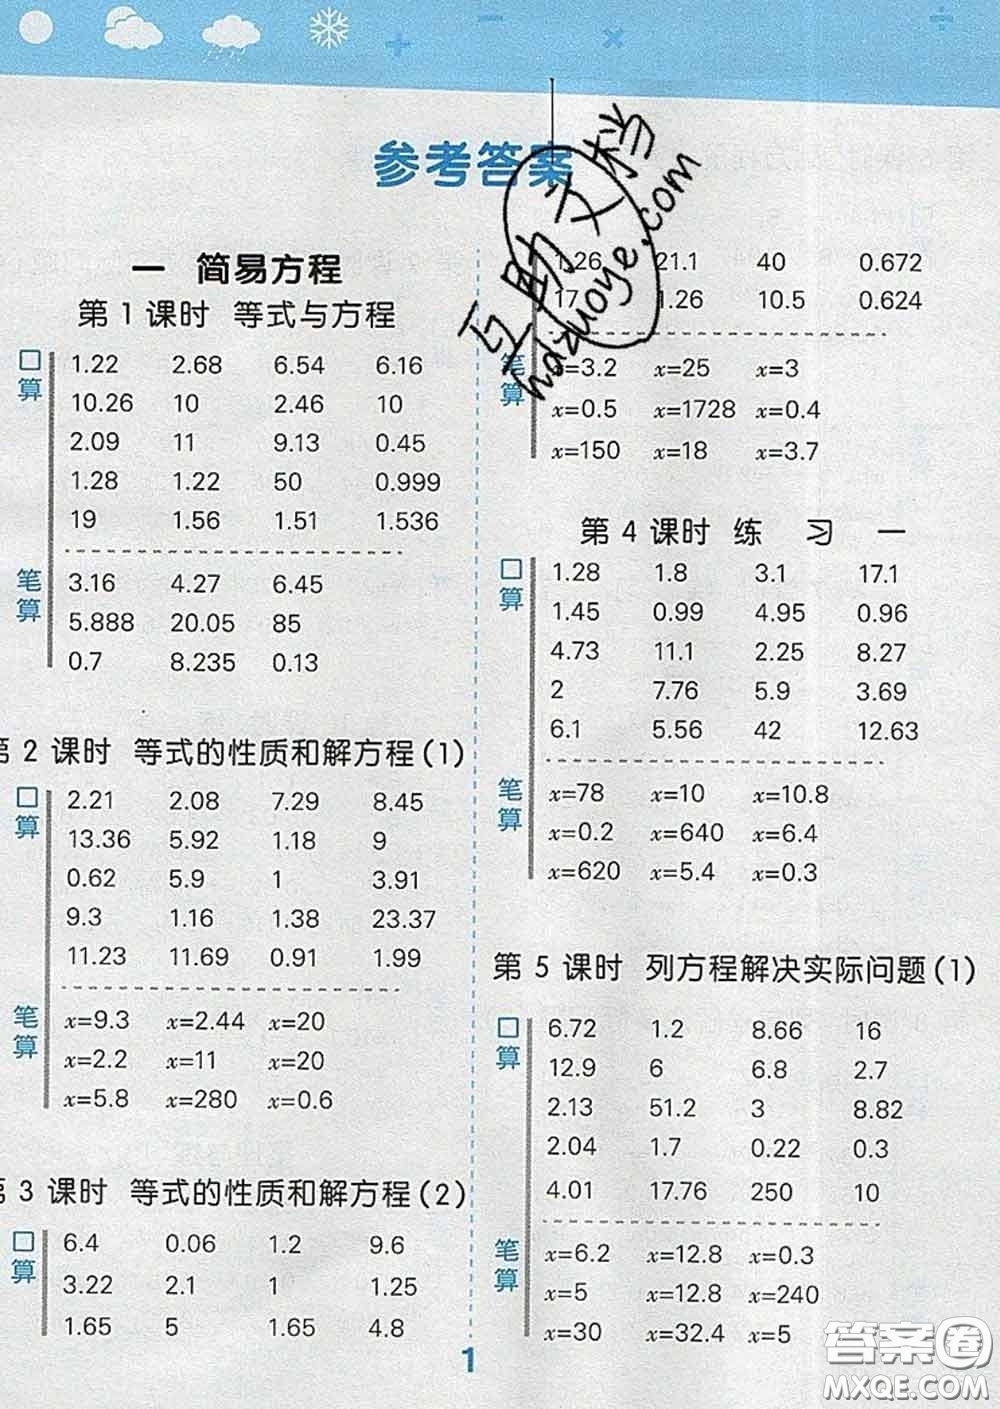 参考答案
一 简易方程
第 1 课时 等式与方程
口算
1.22 2.68 6.54 6.16
10.26 10 2.46 10
2.09 11 9.13 0.45
1.28 1.22 50 0.999
19 1.56 1.51 1.536
笔算
3.16 4.27 6.45
5.888 20.05 85
0.7 8.235 0.13
第 2 课时 等式的性质和解方程(1)
口算
2.21 2.08 7.29 8.45
13.36 5.92 1.18 9
0.62 5.9 1 3.91
9.3 1.16 1.38 23.37
11.23 11.69 0.91 1.99
笔算
x=9.3 x=2.44 x=20
x=2.2 x=11 x=20
x=5.8 x=280 x=0.6
第 3 课时 等式的性质和解方程(2)
口算
6.4 0.06 1.2 9.6
3.22 2.1 1 1.25
1.65 5 1.65 4.8
1.26 21.1 40 0.672
17 1.26 10.5 0.624
笔算
x=3.2 x=25 x=3
x=0.5 x=1728 x=0.4
x=150 x=18 x=3.7
第 4 课时 练 习 一
口算
1.28 1.8 3.1 17.1
1.45 0.99 4.95 0.96
4.73 11.1 2.25 8.27
2 7.76 5.9 3.69
6.1 5.56 42 12.63
笔算
x=78 x=10 x=10.8
x=0.2 x=640 x=6.4
x=620 x=5.4 x=0.3
第 5 课时 列方程解决实际问题(1)
口算
6.72 1.2 8.66 16
12.9 6 6.8 2.7
2.13 51.2 3 8.82
2.04 1.7 0.22 0.3
4.01 17.76 250 10
笔算
x=6.2 x=12.8 x=0.3
x=5 x=12.8 x=240
x=30 x=32.4 x=5
1
互助文档
hdzuoye.com
答案圈
MXQE.COM